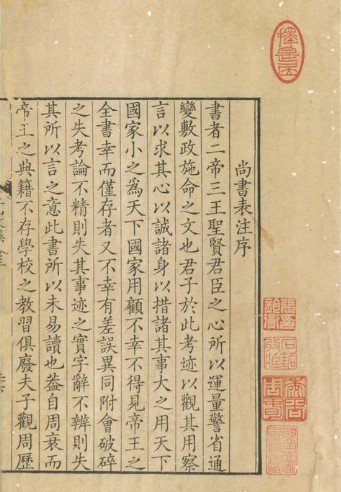 尚書表注序
書者二帝三王聖賢君臣之心所以運量警省通
變敷政施命之文也君子於此考迹以觀其用察
言以求其心以誠諸身以措諸其事大之用天下
國家小之為天下國家用顧不幸不得見帝王之
全書幸而僅存者又不幸有差誤異同附會破碎
之失考論不精則失其事迹之實字辭不辨則失
其所以言之意此書所以未易讀也葢自周衰而
帝王之典籍不存學校之教習俱廢夫子觀周歷